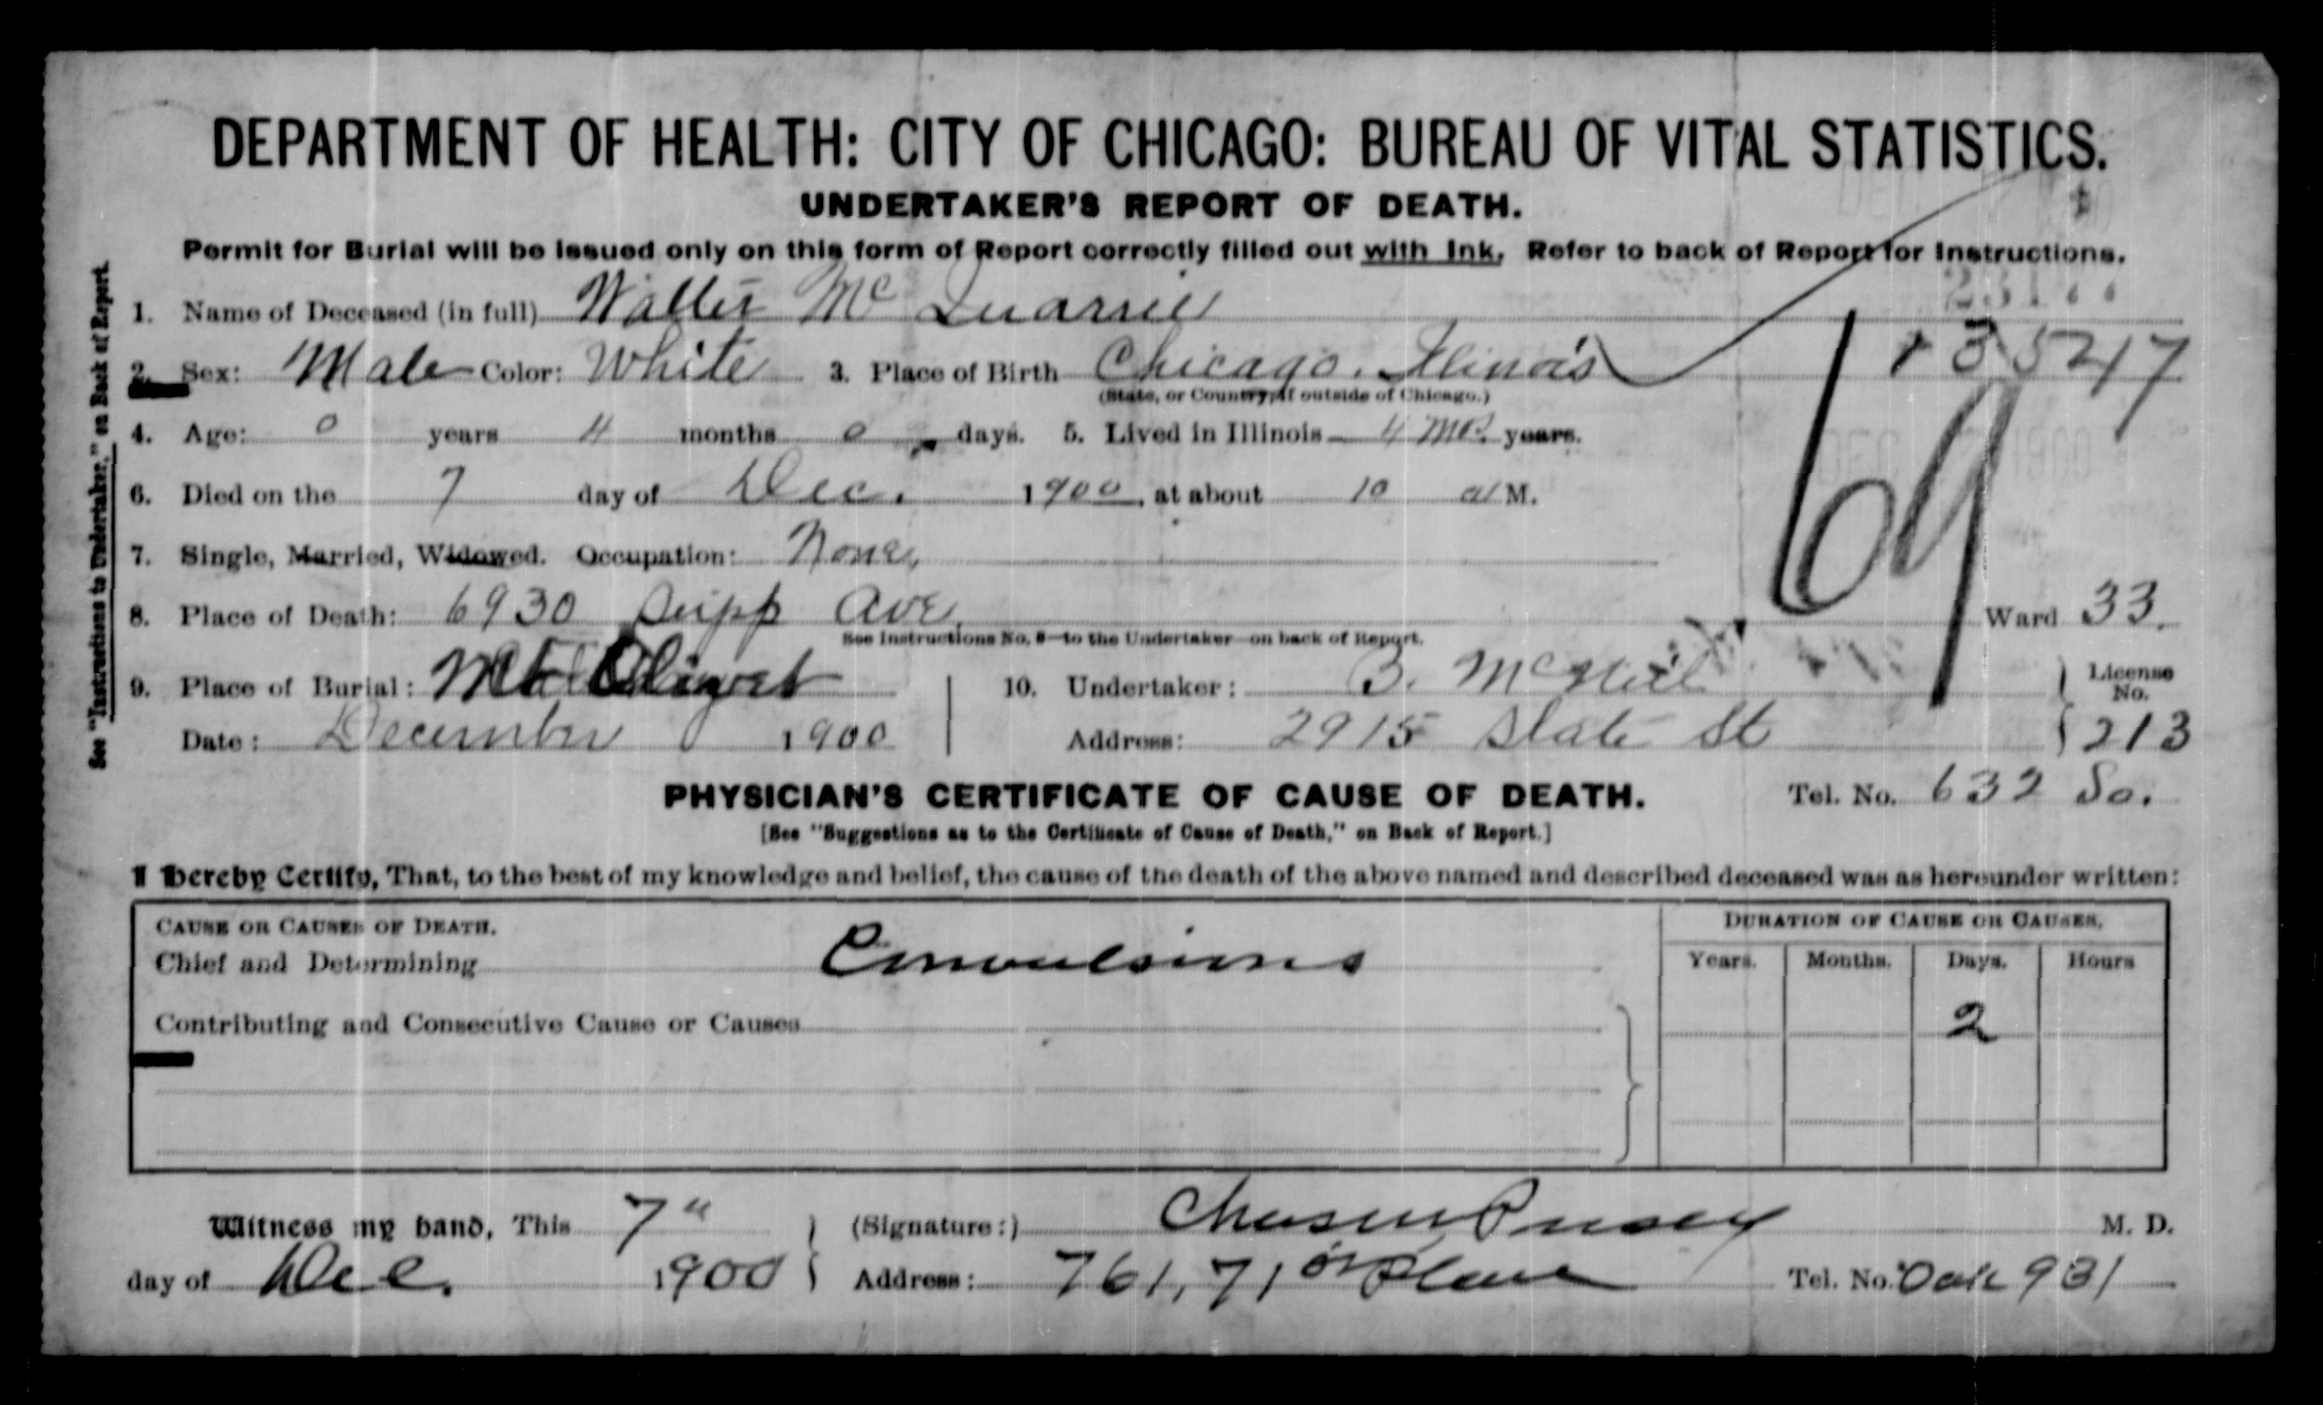 DEPARTMENT OF HEALTH: CITY OF CHICAGO: BUREAU OF VITAL STATISTICS.
UNDERTAKER'S REPORT OF DEATH.
Permit for Burial will be issued only on this form of Report correctly filled out with Ink. Refer to back of Report for Instructions.
See "Instructions to Undertaker," on Back of Report.
1. Name of Deceased (in full) Walter Mc Quarrie
13547
2. Sex: Male Color: White 3. Place of Birth Chicago. Illinois
(State, or Country, if outside of Chicago.)
69
4. Age: 0 years 4 months 0 days. 5. Lived in Illinois 4 Mos. years.
6. Died on the 7 day of Dec. 1900, at about 10 a M.
7. Single, Married, Widowed. Occupation: None
8. Place of Death: 6930 Seipp Ave. Ward 33.
See Instructions No. 8 to the Undertaker on back of Report.
9. Place of Burial: Mt Olivet 10. Undertaker: B. McNeil License No.
Date: December 1900 Address: 2915 State St 213
PHYSICIAN'S CERTIFICATE OF CAUSE OF DEATH. Tel. No. 632 So.
[See "Suggestions as to the Certificate of Cause of Death," on Back of Report.]
I hereby Certify, That, to the best of my knowledge and belief, the cause of the death of the above named and described deceased was as hereunder written:
CAUSE OR CAUSES OF DEATH. DURATION OF CAUSE OR CAUSES.
Chief and Determining Convulsions Years. Months. Days. Hours
Contributing and Consecutive Cause or Causes 2
Witness my hand, This 7" (Signature:) M. D.
day of Dec. 1900 Address: 761, 71st Place Tel. No. Oak 931